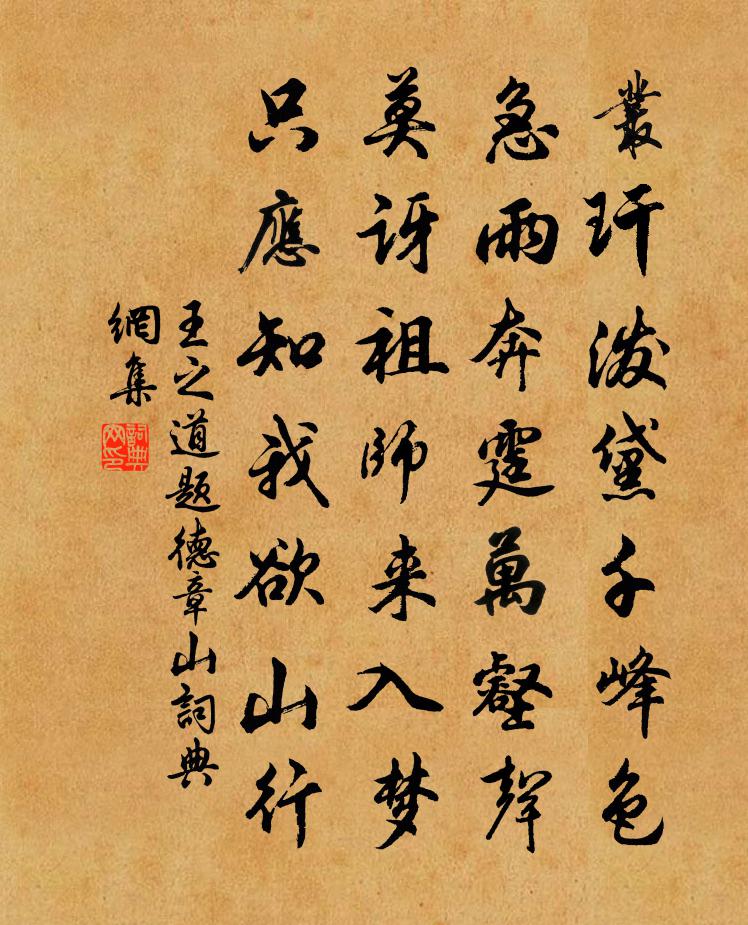 叢玕潑黛千峰色
急雨奔霆萬壑聲
莫訝祖師来入梦
只應知我欲山行
王之道題德章山詞典
網集
詞典网印